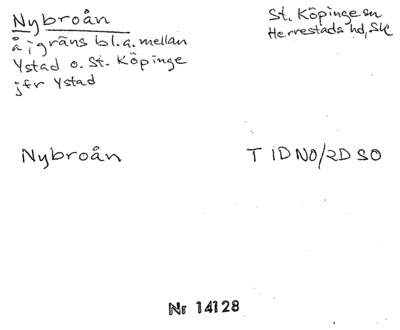 Nybroån
å i gräns bl.a. mellan
Ystad o. St. Köpinge
jfr Ystad
St. Köpinge sn
Herrestads hd, Sk
Nybroån
T 1D NO/2D SO
Nr 14128